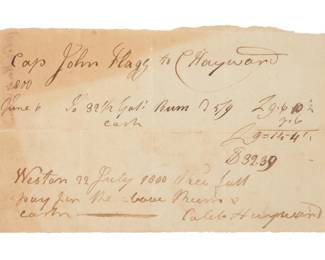 Cap John Flagg to C Hayward
1800
June 6 To 32½ Gals Rum @ 5/9 £9 . 6 . 10½
cash 7 . 6
£9 = 14 = 4½
D 32.39
Weston 22 July 1800 Recd full
pay for the above Rum &
cash Caleb Hayward